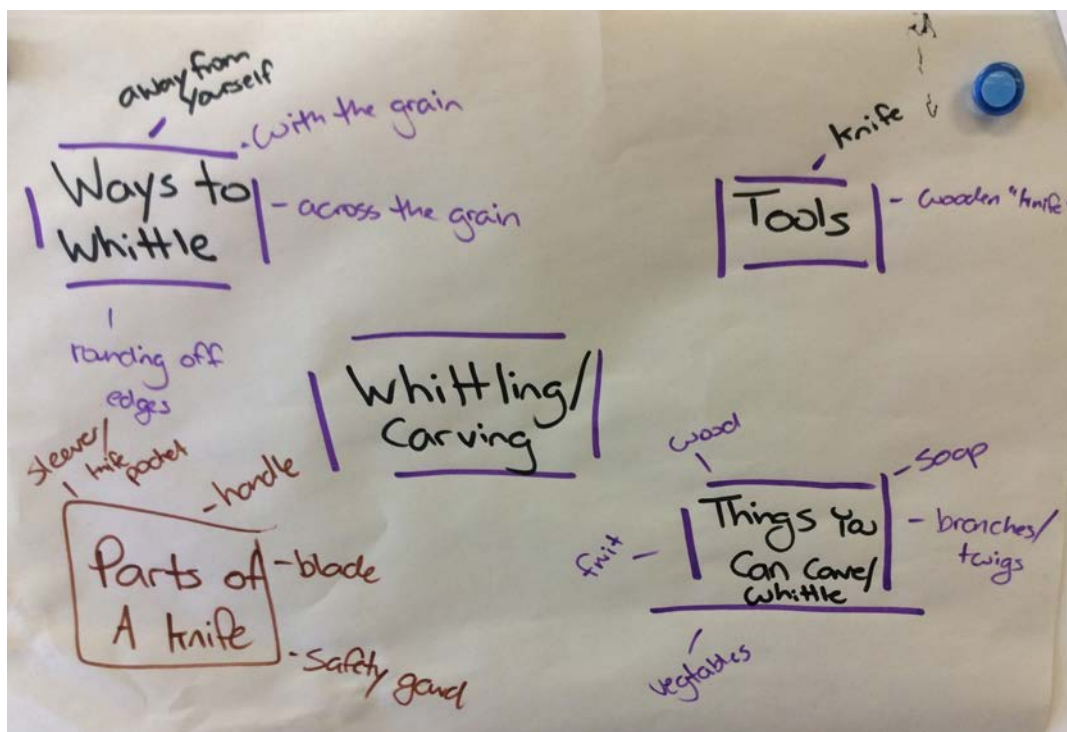 away from
yourself
with the grain
Ways to
Whittle
- across the grain
rounding off
edges
knife
Tools
- wooden "knife
Whittling/
Carving
sleever/
knife pocket
- handle
Parts of
A knife
- blade
- Safety gard
wood
- soap
Things You
Can Carve/
Whittle
- branches/
twigs
fruit -
vegtables